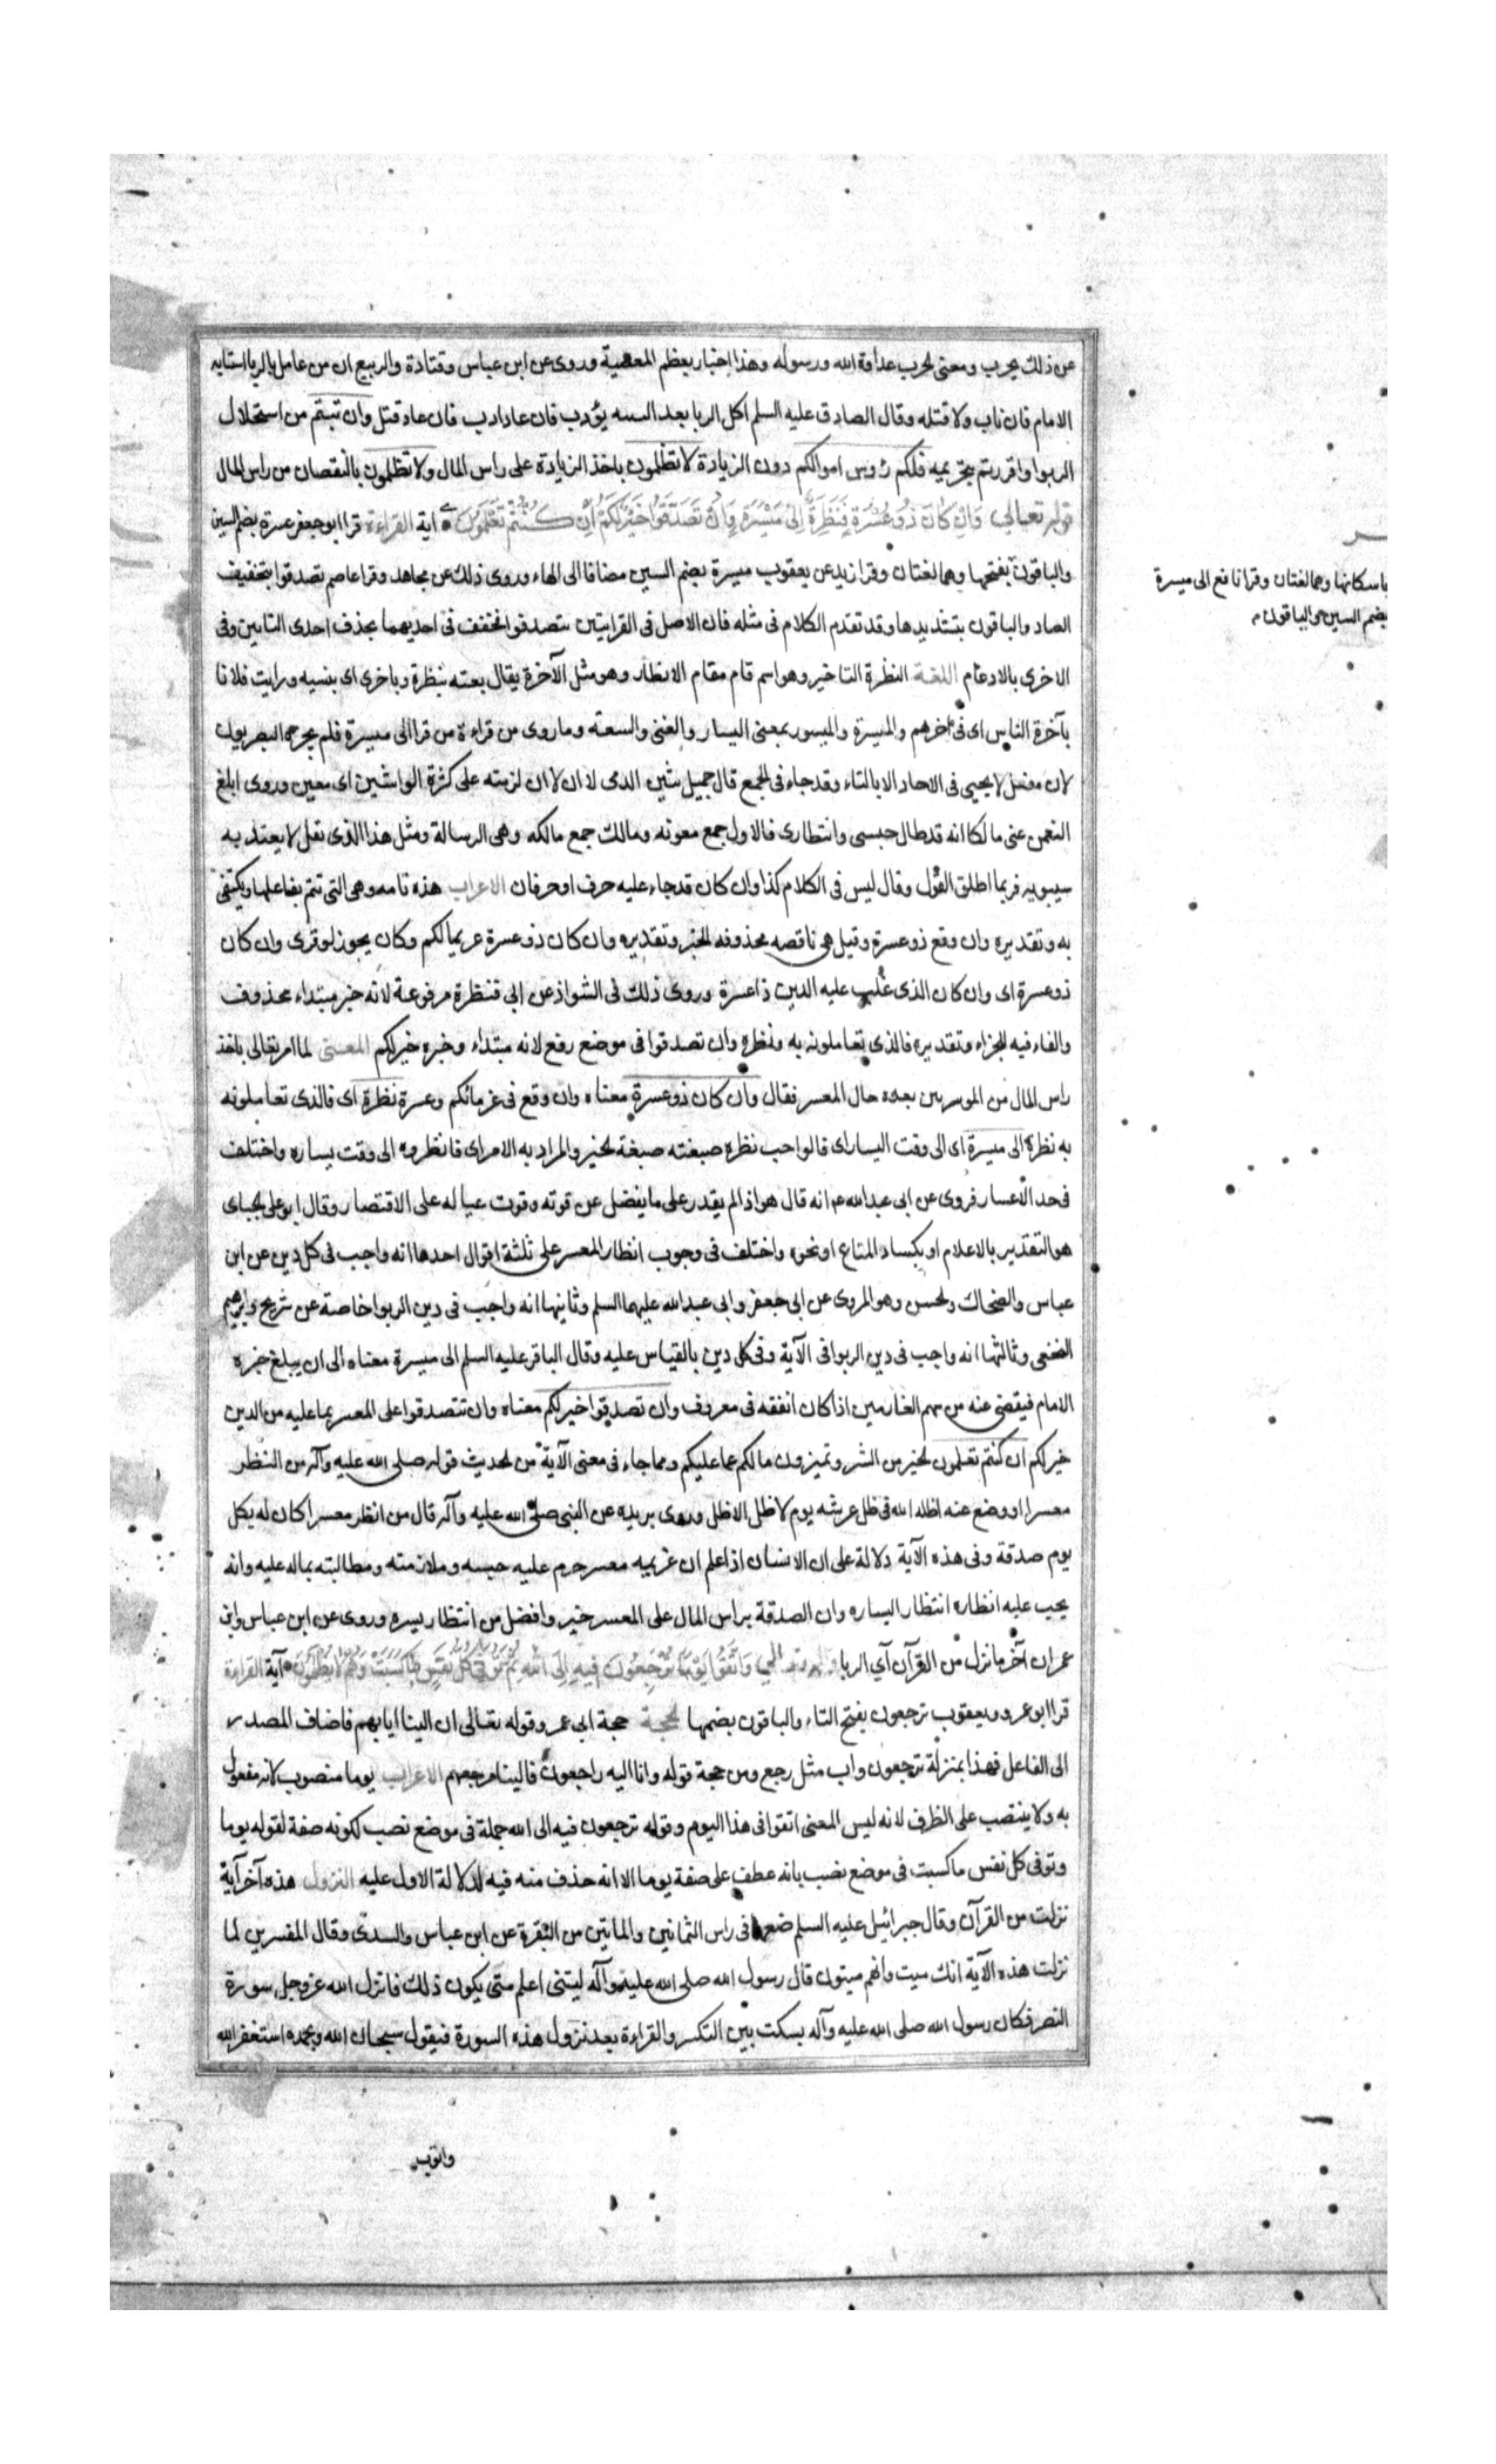 عن ذلك بحرب ومعنى لحرب عداوة الله ورسوله وهذا اخبار بعظم المعصية وروى عن ابن عباس وقتادة والربيع ان من عامل بالربا استتابه
الامام فان تاب ولا قتله وقال الصادق عليه السلم اكل الربا بعد البينه يؤدب فان عاد ادب فان عاد قتل وان تبتم من استحلال
الربوا واقررتم بتحريمه فلكم رؤس اموالكم دون الزيادة لا تظلمون باخذ الزيادة على راس المال ولا تظلمون بالنقصان من راس المال
قوله تعالى وَاِنْ كَانَ ذُو عُسْرَةٍ فَنَظِرَةٌ اِلَى مَيْسَرَةٍ وَاَنْ تَصَدَّقُوا خَيْرٌ لَكُمْ اِنْ كُنْتُمْ تَعْلَمُونَ اية القراءة قرا ابو جعفر عسرة بضم السين
باسكانها وهما لغتان وقرا نافع الى ميسرة
بضم السين والباقون
والباقون بفتحها وهما لغتان وقرا زيد عن يعقوب ميسرة بضم السين مضافا الى الهاء وروى ذلك عن مجاهد وقرا عاصم تصدقوا بتخفيف
الصاد والباقون بتشديدها وقد تقدم الكلام فى مثله فان الاصل فى القرايتين تتصدقوا فخفف فى احديهما بحذف احدى التائين وفى
الاخرى بالادغام اللغة النظرة التاخير وهو اسم قام مقام الانظار وهو مثل الآخرة يقال بعته بنظرة وباخرى اى بنسيه ورايت فلانا
بآخرة الناس اى فى آخرهم والميسرة والميسور بمعنى اليسار والغنى والسعة وما روى من قراءة من قرا الى ميسرة فلم يجزه البصريون
لان مفعل لا يجيى فى الاحاد الا بالتاء وقد جاء فى لجمع قال جميل بثين الدمى لا ان لا ان لزمته على كثرة الواشين اى معين وروى ابلغ
النعمن عنى مالكا انه قد طال حبسى وانتظارى فالاول جمع معونه ومالك جمع مالكه وهى الرسالة ومثل هذا الذى نقل لا يعتد به
سيبويه فربما اطلق القول وقال ليس فى الكلام كذا وان كان قد جاء عليه حرف او حرفان الاعراب هذه تامه وهى التى تتم بفاعلها ويكتفى
به وتقديره وان وقع ذو عسرة وقيل هى ناقصه محذوفه لخبر وتقديره وان كان ذو عسرة غريما لكم وكان يجوز لو قرى وان كان
ذو عسرة اى وان كان الذى غلب عليه الدين ذا عسرة وروى ذلك فى الشواذ عن ابى فنظرة مرفوعة لانه خبر مبتداء محذوف
والفاء فيه للجزاء وتقديره فالذى تعاملونه به ونظرة وان تصدقوا فى موضع رفع لانه مبتداء وخبره خير لكم المعنى لما امر تعالى باخذ
راس المال من الموسرين بعده حال المعسر فقال وان كان ذو عسرة معناه وان وقع فى غرمائكم وعسرة نظرة اى فالذى تعاملونه
به نظرة الى ميسرة اى الى وقت اليسار اى فالواحب نظرة صيغته صيغة لخبر والمراد به الامر اى فانظروه الى وقت يساره واختلف
فى حد الاعسار فروى عن ابى عبد الله عم انه قال هو اذا لم يقدر على ما يفضل عن قوته وقوت عياله على الاقتصار وقال ابو على لجباى
هو التقدير بالاعلام او بكساد المتاع او نحوه واختلف فى وجوب انظار المعسر على ثلثة اقوال احدها انه واجب فى كل دين عن ابن
عباس والضحاك ولحسن وهو المروى عن ابى جعفر وابى عبد الله عليهما السلم وثانيها انه واجب فى دين الربوا خاصة عن شريح وابرهيم
النخعى وثالثها انه واجب فى دين الربوا فى الآية وفى كل دين بالقياس عليه وقال الباقر عليه السلم الى ميسرة معناه الى ان يبلغ خبره
الامام فيقضى عنه من سهم الغارمين اذا كان انفقه فى معروف وان تصدقوا خير لكم معناه وان تتصدقوا على المعسر بما عليه من الدين
خير لكم ان كنتم تعلمون لخير من الشر وتميزون ما لكم عما عليكم ومما جاء فى معنى الآية من لحديث قوله صلى الله عليه وآله من انظر
معسرا او وضع عنه اظله الله فى ظل عرشه يوم لا ظل الا ظل وروى بريده عن النبى صلى الله عليه وآله قال من انظر معسرا كان له بكل
يوم صدقة وفى هذه الآية دلالة على ان الانسان اذا علم ان غريمه معسر حرم عليه حبسه وملازمته ومطالبته بماله عليه وانه
يجب عليه انظاره انتظار اليساره وان الصدقة براس المال على المعسر خير وافضل من انتظار يسره وروى عن ابن عباس وابن
عمر ان آخر ما نزل من القرآن آى الربا قوله تعالى وَاتَّقُوا يَوْمًا تُرْجَعُونَ فِيهِ اِلَى اللهِ ثُمَّ تُوَفَّى كُلُّ نَفْسٍ مَا كَسَبَتْ وَهُمْ لَا يُظْلَمُونَ آية القراءة
قرا ابو عمرو ويعقوب ترجعون بفتح التاء والباقون بضمها لحجة حجة ابى عمرو قوله تعالى ان الينا ايابهم فاضاف المصدر
الى الفاعل فهذا بمنزلة ترجعون واب مثل رجع ومن حجة قوله وانا اليه راجعون فالينا مرجعهم الاعراب يوما منصوب لانه مفعول
به ولا ينتصب على الظرف لانه ليس المعنى اتقوا فى هذا اليوم وقوله ترجعون فيه الى الله جملة فى موضع نصب لكونه صفة لقوله يوما
وتوفى كل نفس ما كسبت فى موضع نصب بانه عطف على صفة يوما الا انه حذف منه فيه لدلالة الاول عليه النزول هذه آخر آية
نزلت من القرآن وقال جبرائيل عليه السلم ضعها فى راس الثمانين والماتين من البقرة عن ابن عباس والسدى وقال المفسرين لما
نزلت هذه الآية انك ميت وانهم ميتون قال رسول الله صلى الله عليه وآله ليتنى اعلم متى يكون ذلك فانزل الله عز وجل سورة
النصر فكان رسول الله صلى الله عليه وآله يسكت بين التكبر والقراءة بعد نزول هذه السورة فيقول سبحان الله وبحمده استغفر الله
واتوب